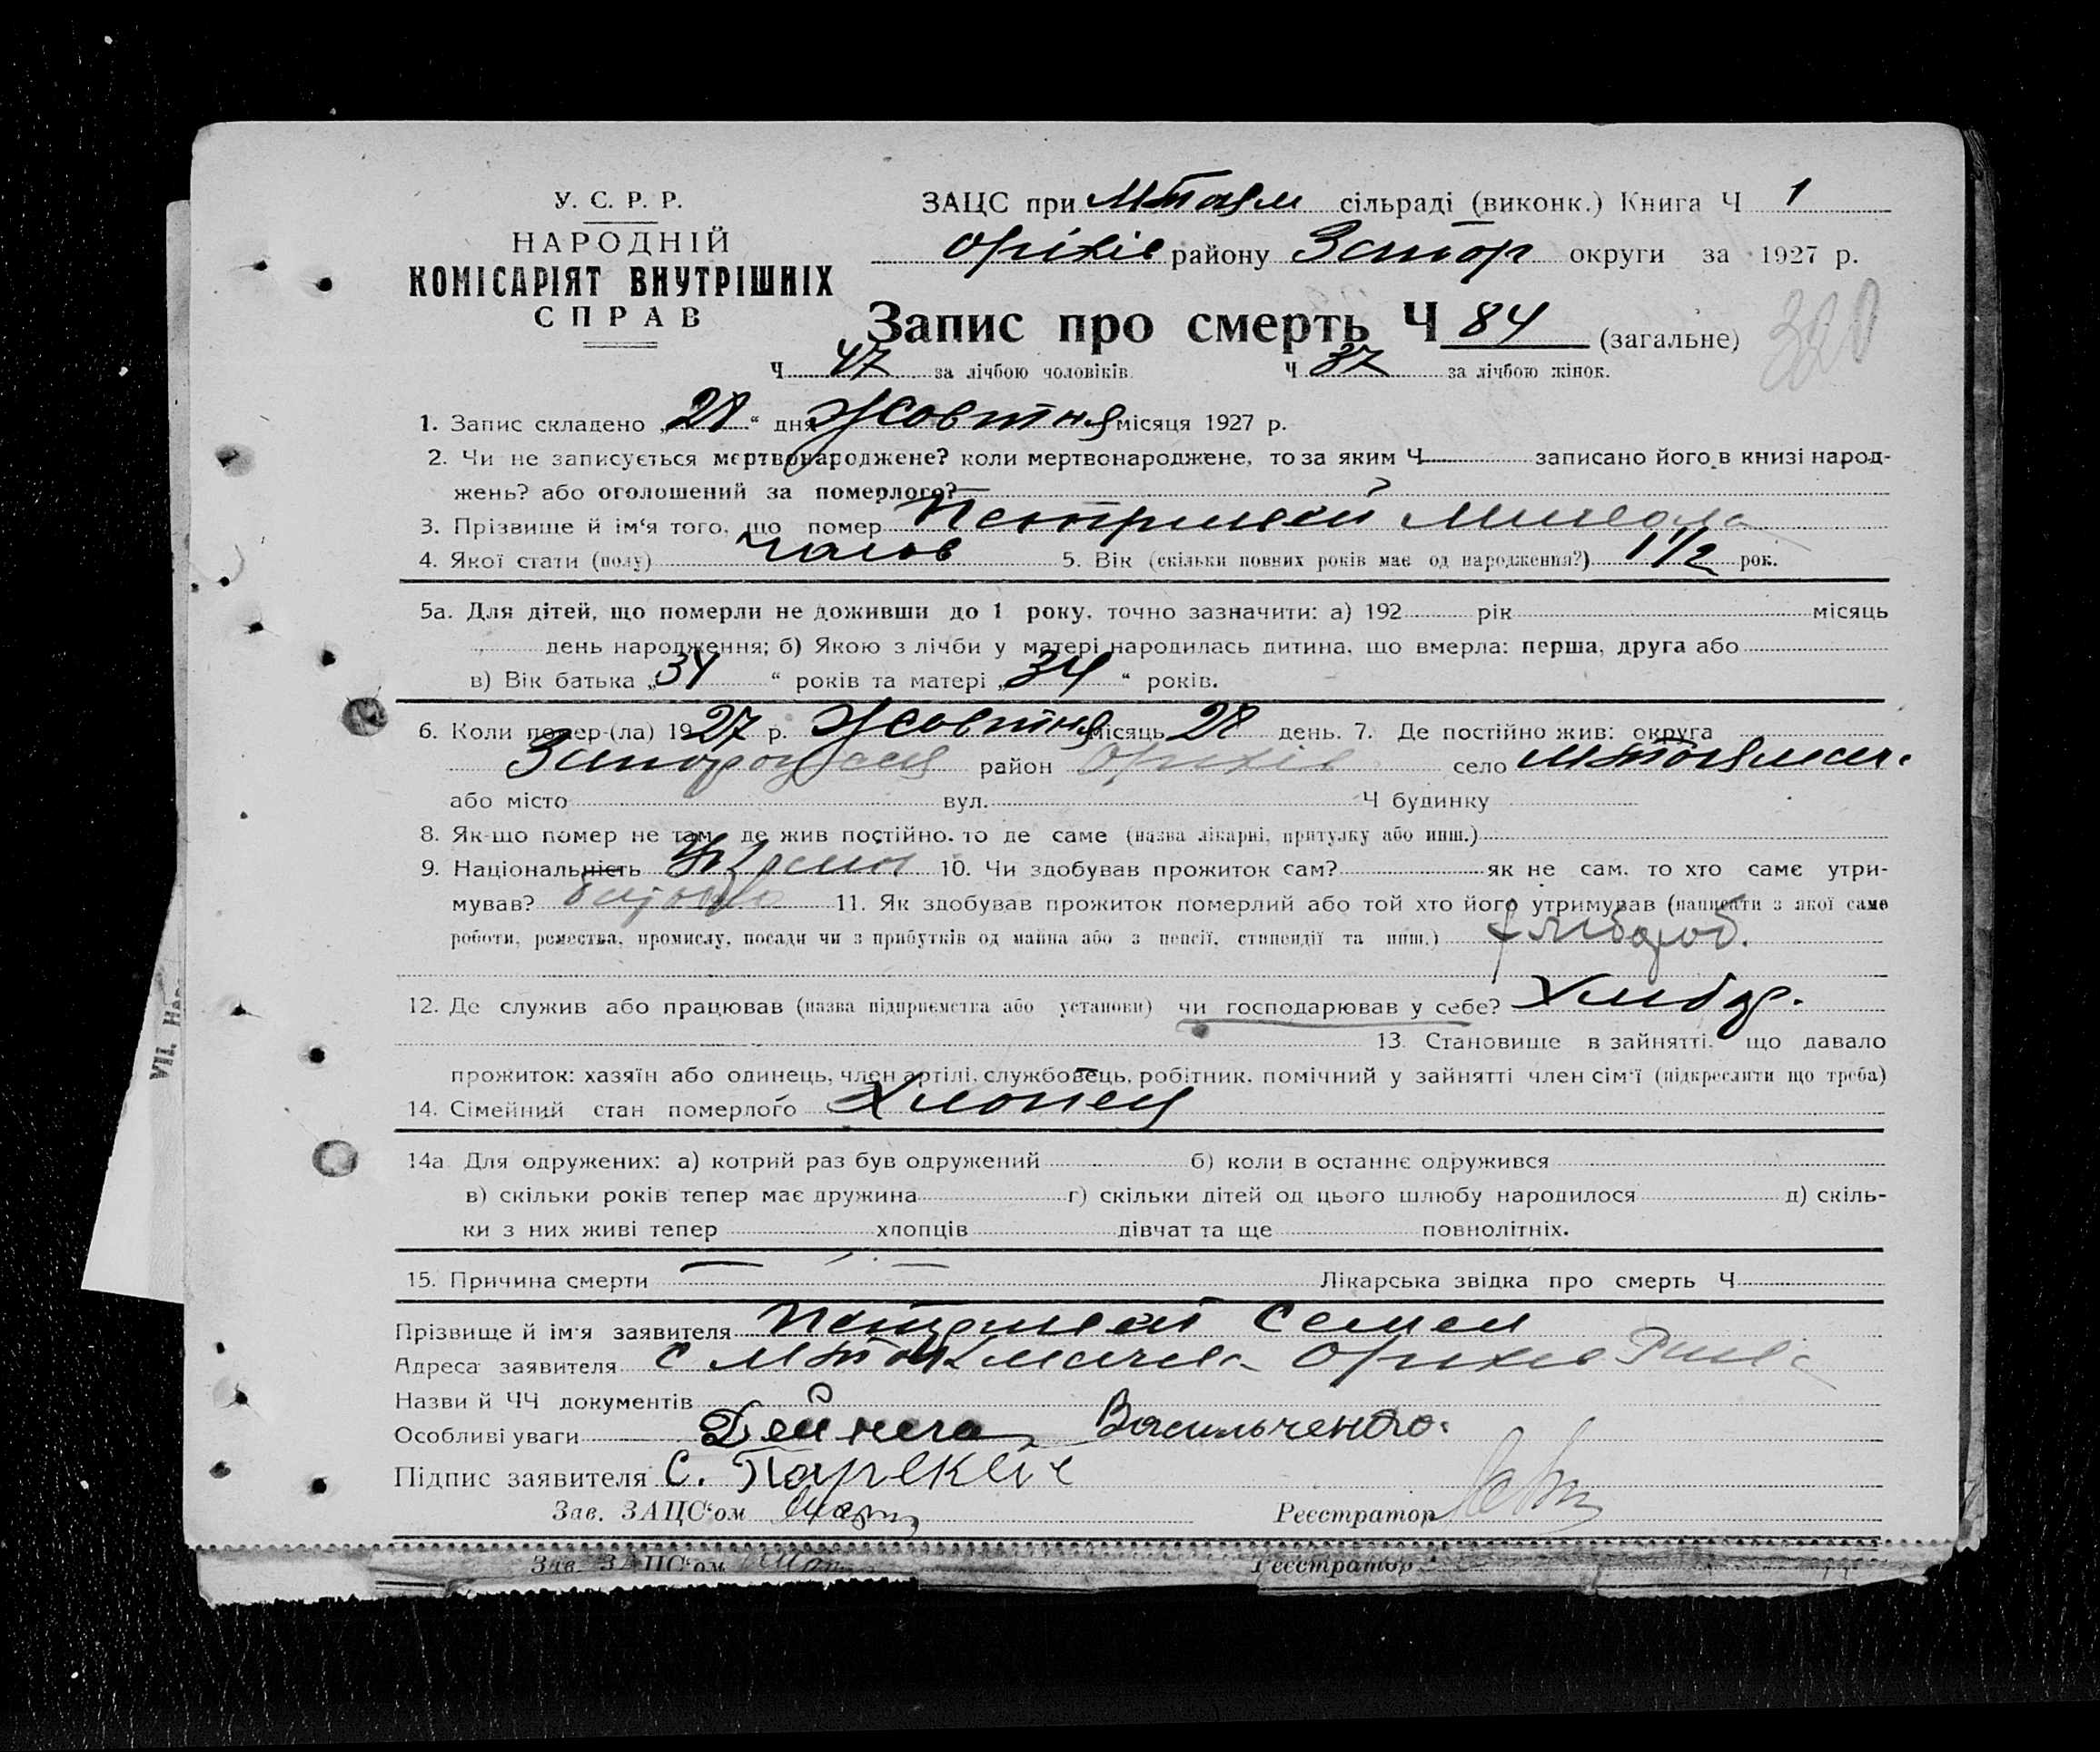 У. С. Р. Р.
НАРОДНІЙ
КОМІСАРІЯТ ВНУТРІШНІХ
СПРАВ
ЗАЦС при М Токм сільраді (виконк.) Книга Ч 1
Оріхів району Запор округи за 1927 р.
Запис про смерть Ч 84 (загальне)
320
Ч 47 за лічбою чоловіків. Ч 37 за лічбою жінок.
1. Запис складено „28“ дня Жовтня місяця 1927 р.
2. Чи не записується мертвонароджене? коли мертвонароджене, то за яким Ч записано його в книзі народ-
жень? або оголошений за померлого? —
3. Прізвище й ім‘я того, що помер Микола
4. Якої стати (полу) чолов 5. Вік (скільки повних років має од народження?) 1 1/2 рок.
5а. Для дітей, що померли не доживши до 1 року, точно зазначити: а) 192 рік місяць
день народження; б) Якою з лічби у матері народилась дитина, що вмерла: перша, друга або
в) Вік батька „34“ років та матері „34“ років.
6. Коли помер-(ла) 1927 р. Жовтня місяць 28 день. 7. Де постійно жив: округа
Запорожська район Оріхів село М Токмач.
або місто вул. Ч будинку
8. Як-що помер не там, де жив постійно, то де саме (назва лікарні, притулку або инш.)
9. Національність Україн 10. Чи здобував прожиток сам? як не сам, то хто саме утри-
мував? батько 11. Як здобував прожиток померлий або той хто його утримував (написати з якої саме
роботи, ремества, промислу, посади чи з прибутків од майна або з пенсії, стипендії та инш.) хлібороб.
12. Де служив або працював (назва підприємства або установи) чи господарював у себе? Хлібор.
13. Становище в зайнятті, що давало
прожиток: хазяїн або одинець, член артілі, службовець, робітник, помічний у зайнятті член сім‘ї (підкреслити що треба)
14. Сімейний стан померлого Хлопець
14а Для одружених: а) котрий раз був одружений б) коли в останнє одружився
в) скільки років тепер має дружина г) скільки дітей од цього шлюбу народилося д) скіль-
ки з них живі тепер хлопців дівчат та ще повнолітніх.
15. Причина смерти — — Лікарська звідка про смерть Ч
Прізвище й ім‘я заявителя Семен
Адреса заявителя с М Токмачка Оріхів
Назви й ЧЧ документів
Особливі уваги Дейнега Васильченко.
Підпис заявителя С.
Зав. ЗАЦС‘ом Реєстратор
Зав. ЗАЦС‘ом Реєстратор